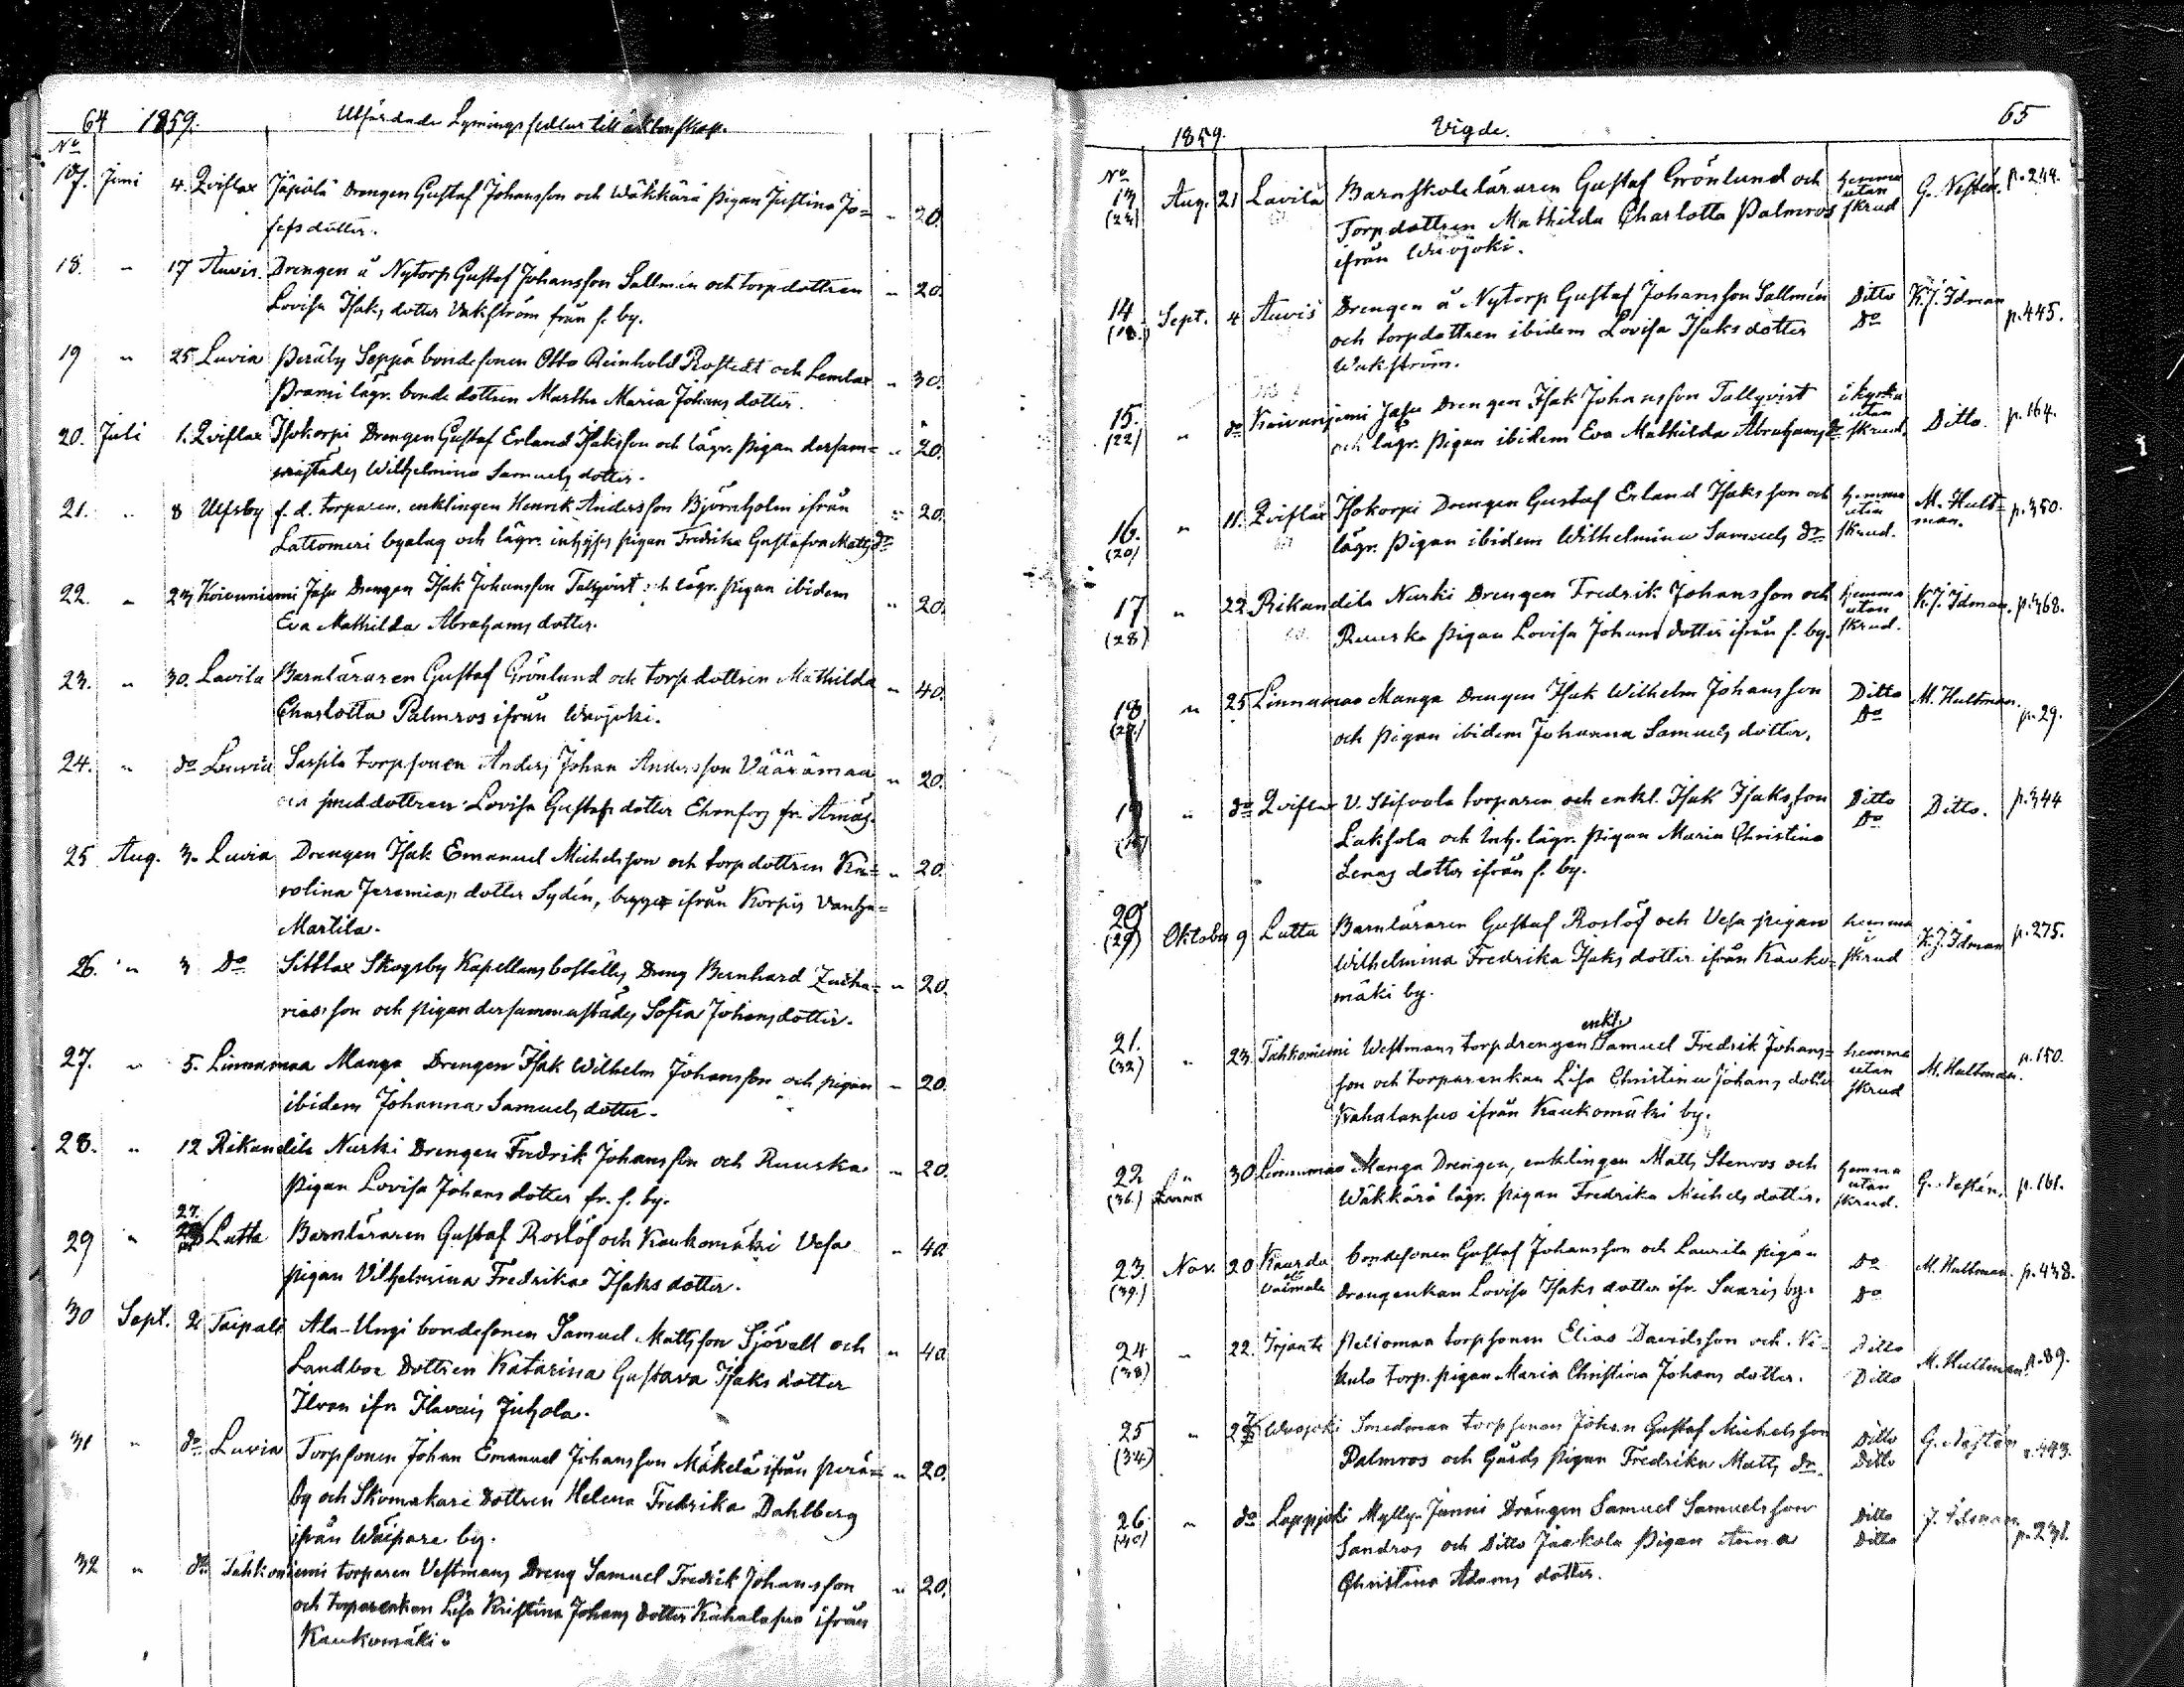 64 1859. Utfärdade Lysningssedlar till äktenskap.
No
17. Juni 4. Qviflax Jäpölä Drengen Gustaf Johansson och Wäkkärä Pigan Justina Jo= " 20.
sefsdotter.
18. " 17 Anvis. Drengen å Nytorp Gustaf Johansson Sallmén och torpdottren " 20.
Lovisa Isaks dotter Vakström från s. by.
19 " 25 Luvia Peräby Seppä bondesonen Otto Reinhold Rostedt och Lemlax " 30.
Prami lägr. bonde dottren Martha Maria Johans dotter.
20. Juli 1. Qviflax Isokorpi Drengen Gustaf Erland Isaksson och lägr. Pigan dersam= " 20.
mastädes Wilhelmina Samuels dotter.
21. " 8 Ulfsby f. d. torparen, enklingen Henrik Andersson Björnholm ifrån " 20.
Lattomeri byalag och lägr. inhyses pigan Fredrika Gustafva Matts dr
22. " 23 Koivuniemi Jasu Drengen Isak Johansson Tallqvist och lägr. Pigan ibidem " 20.
Eva Mathilda Abrahams dotter.
23. " 30. Lavila Barnläraren Gustaf Grönlund och torpdottren Mathilda " 40.
Charlotta Palmros ifrån Wuojoki.
24. " do Luvia Sassila torpsonen Anders Johan Andersson Väärämaa " 20.
och smeddottren Lovisa Gustafs dotter Ehrnfors fr. Arnäs.
25 Aug. 3. Luvia Drengen Isak Emanuel Michelsson och torpdottren Ka= " 20.
rolina Jeremias dotter Sydén, begge ifrån Korpis Vanha=
Martila.
26. " 3 Do Sittlax Skogsby Kapellans boställes Dreng Bernhard Zacha= " 20.
riasson och pigan dersammastädes Sofia Johans dotter.
27. " 5. Linnamaa Manga Drengen Isak Wilhelm Johansson och pigan " 20.
ibidem Johanna Samuels dotter.
28. " 12 Rikandila Nurki Drengen Fredrik Johansson och Ruuska " 20.
Pigan Lovisa Johans dotter fr. s. by.
29 " 27. Lutta Barnläraren Gustaf Roslöf och Kaukomäki Vesa " 40
pigan Vilhelmina Fredrika Isaks dotter.
30 Sept. 2 Taipale Ala-Ungi bondesonen Samuel Mattsson Sjövall och " 40
Landboe Dottren Katarina Gustava Isaks dotter
Ilvan ifn Ilavais Juhola.
31 " do Luvia Torpsonen Johan Emanuel Johansson Mäkelä ifrån Perä= " 20.
by och Skomakare Dottren Helena Fredrika Dahlberg
ifrån Wäipare by.
32 " do Tahkoniemi torparen Vestmans Dreng Samuel Fredrik Johansson " 20.
och torparenkan Lisa Kristina Johans dotter Kahalasuo ifrån
Kaukomäki.
1859. Vigde. 65
No
13 (23) Aug. 21 Lavila Barnskoleläraren Gustaf Grönlund och hemma utan skrud G. Nestén. p. 244.
Torpdottren Mathilda Charlotta Palmros
ifrån Wuojoki.
14 (18.) Sept. 4 Anvis Drengen å Nytorp Gustaf Johansson Sallmén Ditto Do K. J. Idman p. 445.
och torpdottren ibidem Lovisa Isaks dotter
Wakström.
15. (22) " do Koivuniemi Jasu Drengen Isak Johansson Tallqvist i kyrka utan skrud. Ditto. p. 164.
och lägr. Pigan ibidem Eva Mathilda Abrahams dr
16. (20) " 11. Qviflax Isokorpi Drengen Gustaf Erland Isaksson och hemma utan skrud. M. Hult=man. p. 350.
lägr. Pigan ibidem Wilhelmina Samuels dr
17 (28) " 22 Rikandila Nurki Drengen Fredrik Johansson och hemma utan skrud. K. J. Idman. p. 368.
Ruuska Pigan Lovisa Johans dotter ifrån s. by.
18 (27.) " 25 Linnamaa Manga Drengen Isak Wilhelm Johansson Ditto Do M. Hultman. p. 29.
och Pigan ibidem Johanna Samuels dotter.
19 " do Qviflax torparen och enkl. Isak Isaksson Ditto Do Ditto. p. 344
Laksola och Inh. lägr. Pigan Maria Christina
Lenas dotter ifrån s. by.
20 (29) Oktober 9 Lutta Barnläraren Gustaf Roslöf och Vesa pigan hemma skrud K. J. Idman p. 275.
Wilhelmina Fredrika Isaks dotter ifrån Kauko=
mäki by.
21. (32) " 23. Tahkoniemi Westmans torpdrengen enkl. Samuel Fredrik Johans= hemma utan skrud M. Hultman. p. 150.
son och torparenkan Lisa Christina Johans dotter
Kahalansuo ifrån Kaukomäki by.
22 (36.) " 30 Linnamaa Manga Drengen, enklingen Matts Stenros och hemma utan skrud. G. Nestén. p. 161.
Wäkkärä lägr. Pigan Fredrika Michels dotter.
23. (39.) Nov. 20 bondesonen Gustaf Johansson och Laurila pigan Do Do M. Hultman. p. 438.
drengenkan Lovisa Isaks dotter ifr. Saaris by.
24 (38) " 22. Irjante Peltomaa torpsonen Elias Davidsson och Ditto Ditto M. Hultman. p. 89.
torp. pigan Maria Christina Johans dotter.
25 (34) " 27 Wuojoki Smedmaa torpsonen Johan Gustaf Michelsson Ditto Ditto G. Nestén p. 443.
Palmros och Gårds Pigan Fredrika Matts dr.
26. (40) " do Lappijoki Mylly-Junni Drängen Samuel Samuelsson Ditto Ditto J. Idman p. 231.
Sandros och Ditto Jaakola Pigan Anna
Christina Adams dotter.